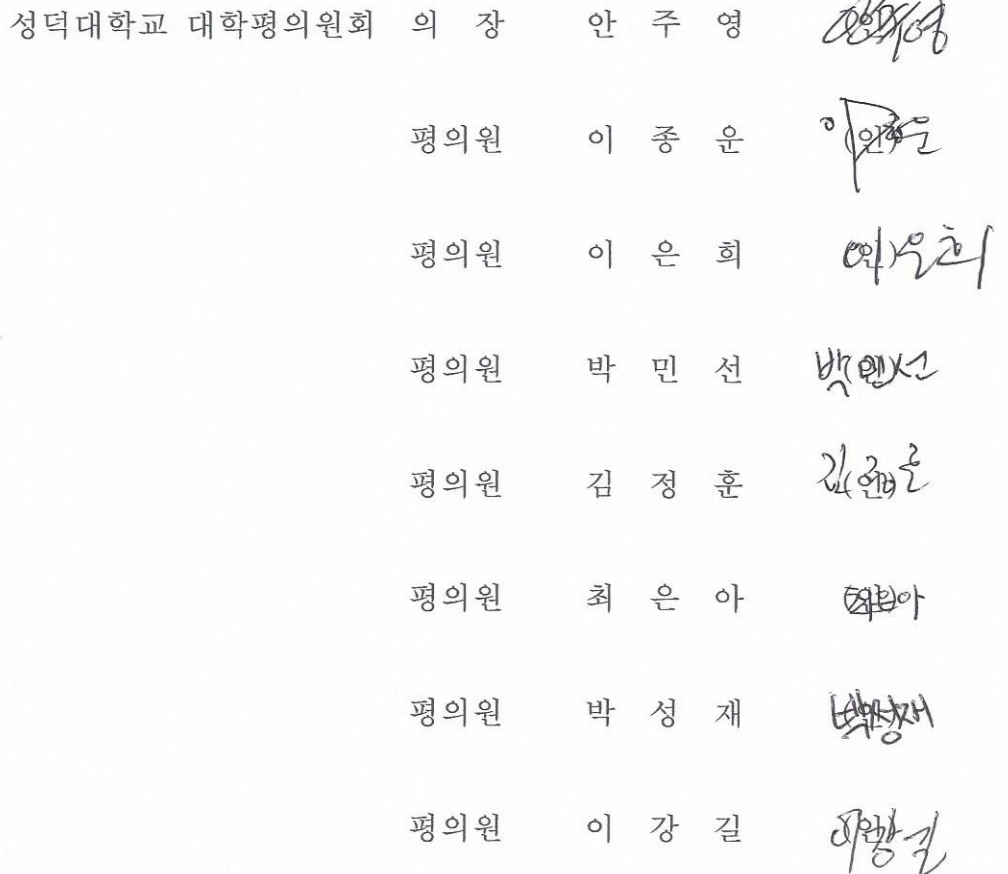 성덕대학교 대학평의원회 의 장 안 주 영 (인) 안주영
평의원 이 종 운 (인) 이종운
평의원 이 은 희 (인) 이은희
평의원 박 민 선 (인) 박민선
평의원 김 정 훈 (인) 김정훈
평의원 최 은 아 (인) 최은아
평의원 박 성 재 (인) 박성재
평의원 이 강 길 (인) 이강길